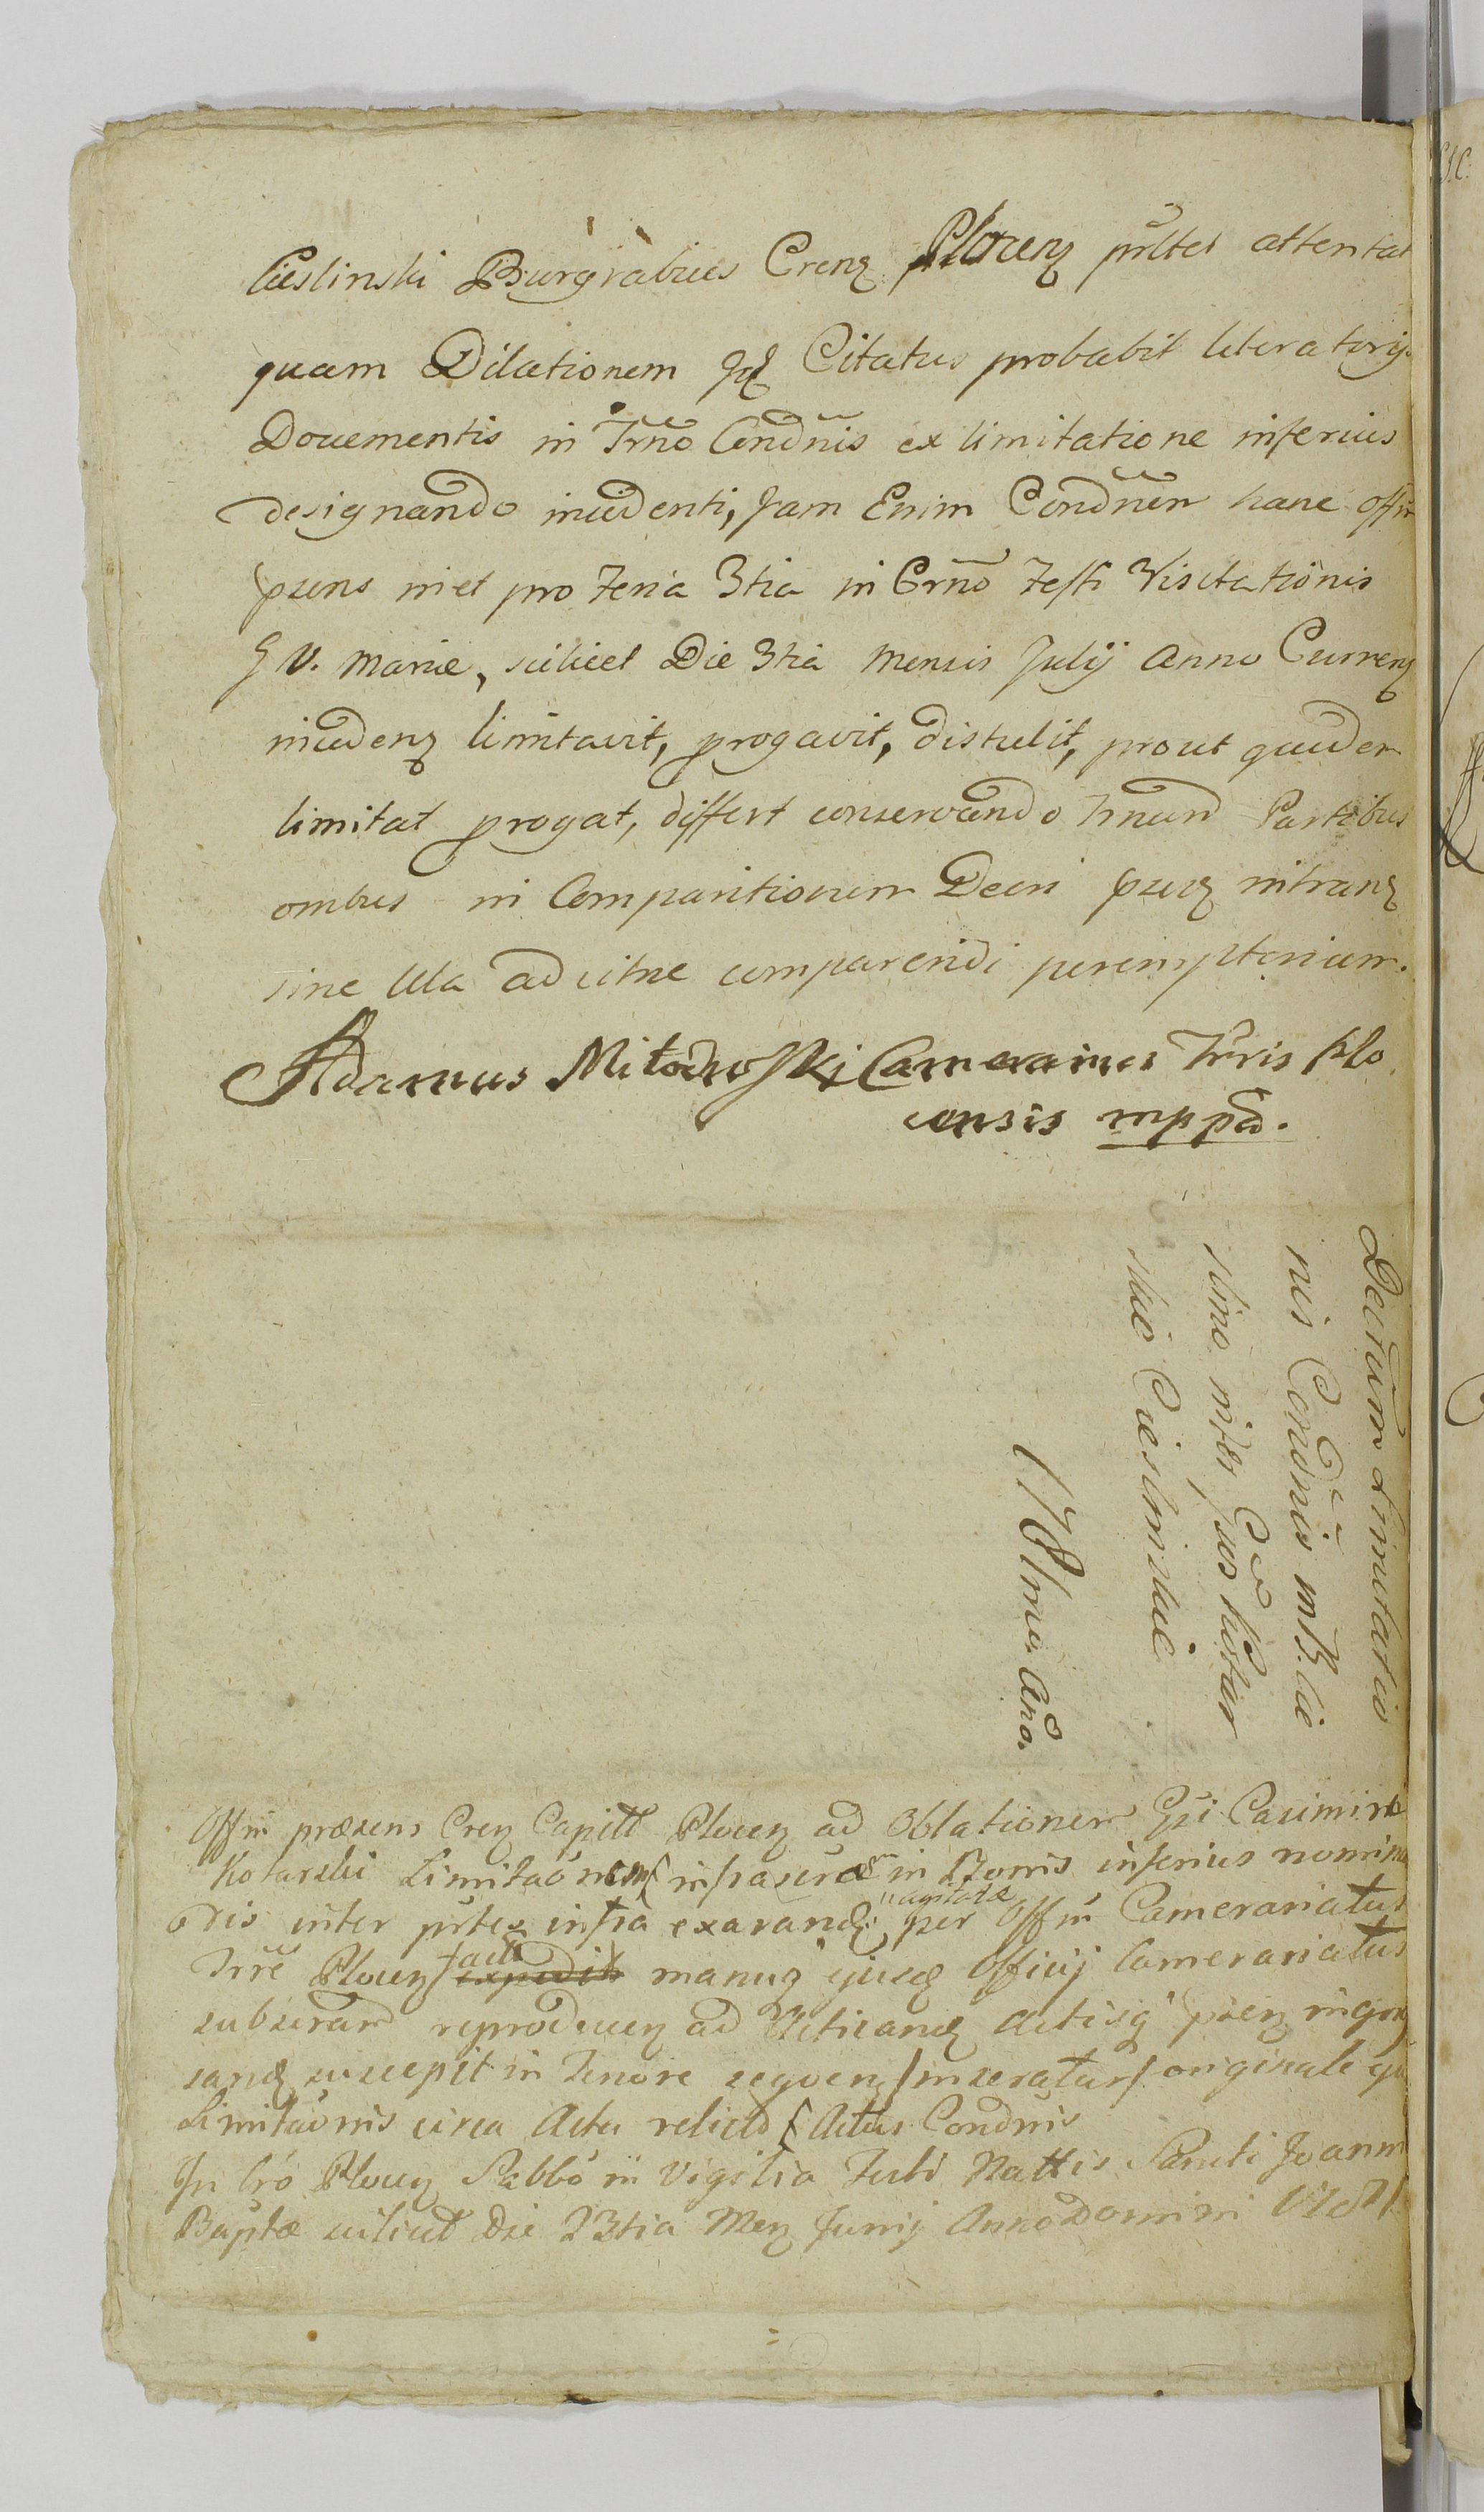 Cieslinski Burgrabius Crens Plocens pñtes attentat
quam Dilationem Gsus Citatus probabit literatorijs
Documentis in Trño Condñis ex limitatione inferius
designando incidenti, Jam Enim Condñem hanc offm
psens in et pro Feria 3tia in Crño Festi Visitationis
B V. Mariæ, scilicet Die 3tia Mensis Julij Anno Currenz
incidenz limitavit, progavit, distulit, prout quidem
limitat progat, differt conservando Trnum Partibus
ombus in Comparitionem Decri psens intranz
sine ulla ad citne comparendi peremptorium.
Adamus Miłodroski Camerarius Trris Plo
censis mppa.
Decrtum Limitatio
nis Condnis in B. Cie
slino inter Gsos Kotar
skie Cieslinskie
1781mo. Año.
Offm præsens Cren Capitl Plocen ad Oblationem Gsi Casimiri
Kotarski Limitaõnem infrascrae in Bonis inferius nomina
dis inter pñtes infra exarand agitatæ per Offm Camerariatus
Trre Plocen facti expedit manuq ejusd Officij Camerariatus
subscrand reproducen ad Acticand Actisq psen ingros
sand suscepit in Tenore seqven /inseratur/ originale qu
Limitaõnis circa Acta relicto Actus Condnis
In Cro Plocen Sabbo in Vigilia Festi Nattis Sancti Joann
Baptæ scilicet Die 23tia Men Junij Anno Domini 1781